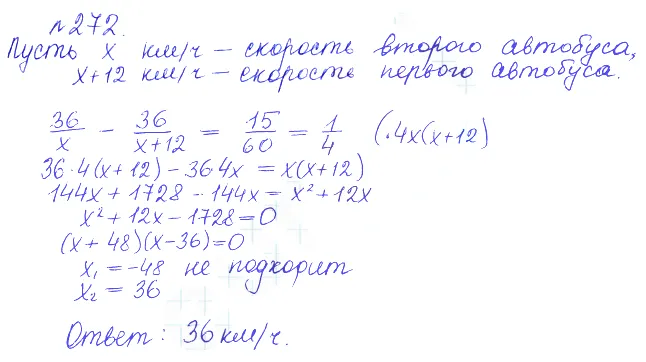 №272.
Пусть x км/ч – скорость второго автобуса,
x+12 км/ч – скорость первого автобуса.
36/x − 36/(x+12) = 15/60 = 1/4 (·4x(x+12)
36·4(x+12) − 36·4x = x(x+12)
144x + 1728 − 144x = x² + 12x
x² + 12x − 1728 = 0
(x + 48)(x − 36) = 0
x₁ = −48 не подходит
x₂ = 36
Ответ: 36 км/ч.